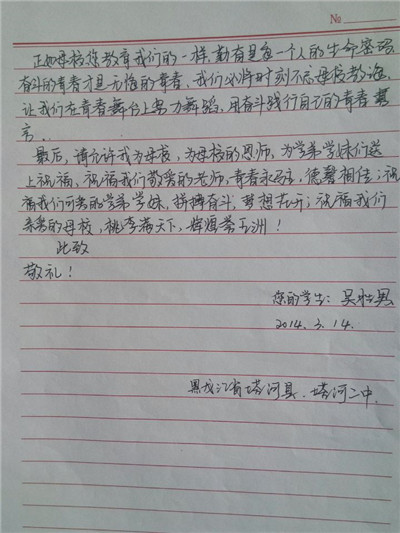 №
正如母校您教育我们的一样，勤奋是每一个人的生命密码
奋斗的青春才是无悔的青春，我们必将时刻不忘母校教诲，
让我们在青春舞台上努力舞蹈，用奋斗践行自己的青春誓
言．
最后，请允许我为母校，为母校的恩师，为学弟学妹们送
上祝福，祝福我们敬爱的老师，青春永驻，德馨相传；祝
福我们可爱的学弟学妹，拼搏奋斗，梦想花开；祝福我们
亲爱的母校，桃李满天下，辉煌誉五洲！
此致
敬礼！
您的学生：吴壮男
2014．3．14．
黑龙江省塔河县．塔河二中．